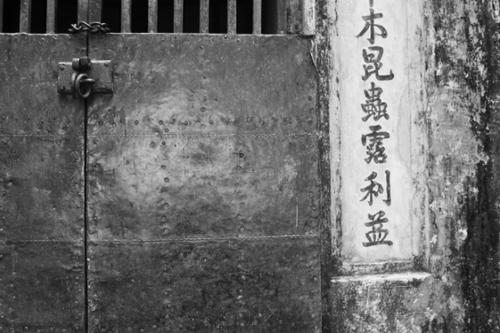 木昆蟲露利益